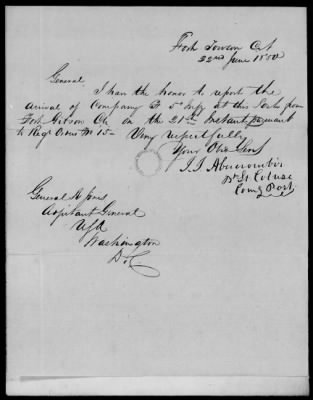 Fort Towson C.N
22nd June 1850
General
I have the honor to report the
arrival of Company F 5th Infy at this Post from
Fort Gibson CN on the 21st Instant pursuant
to Regt Orders No 15 - Very respectfully
Your Obt Servt
J J Abercrombie
Bt Lt Col USA
Comdg Post
General R Jones
Adjutant General
USA
Washington
D.C.